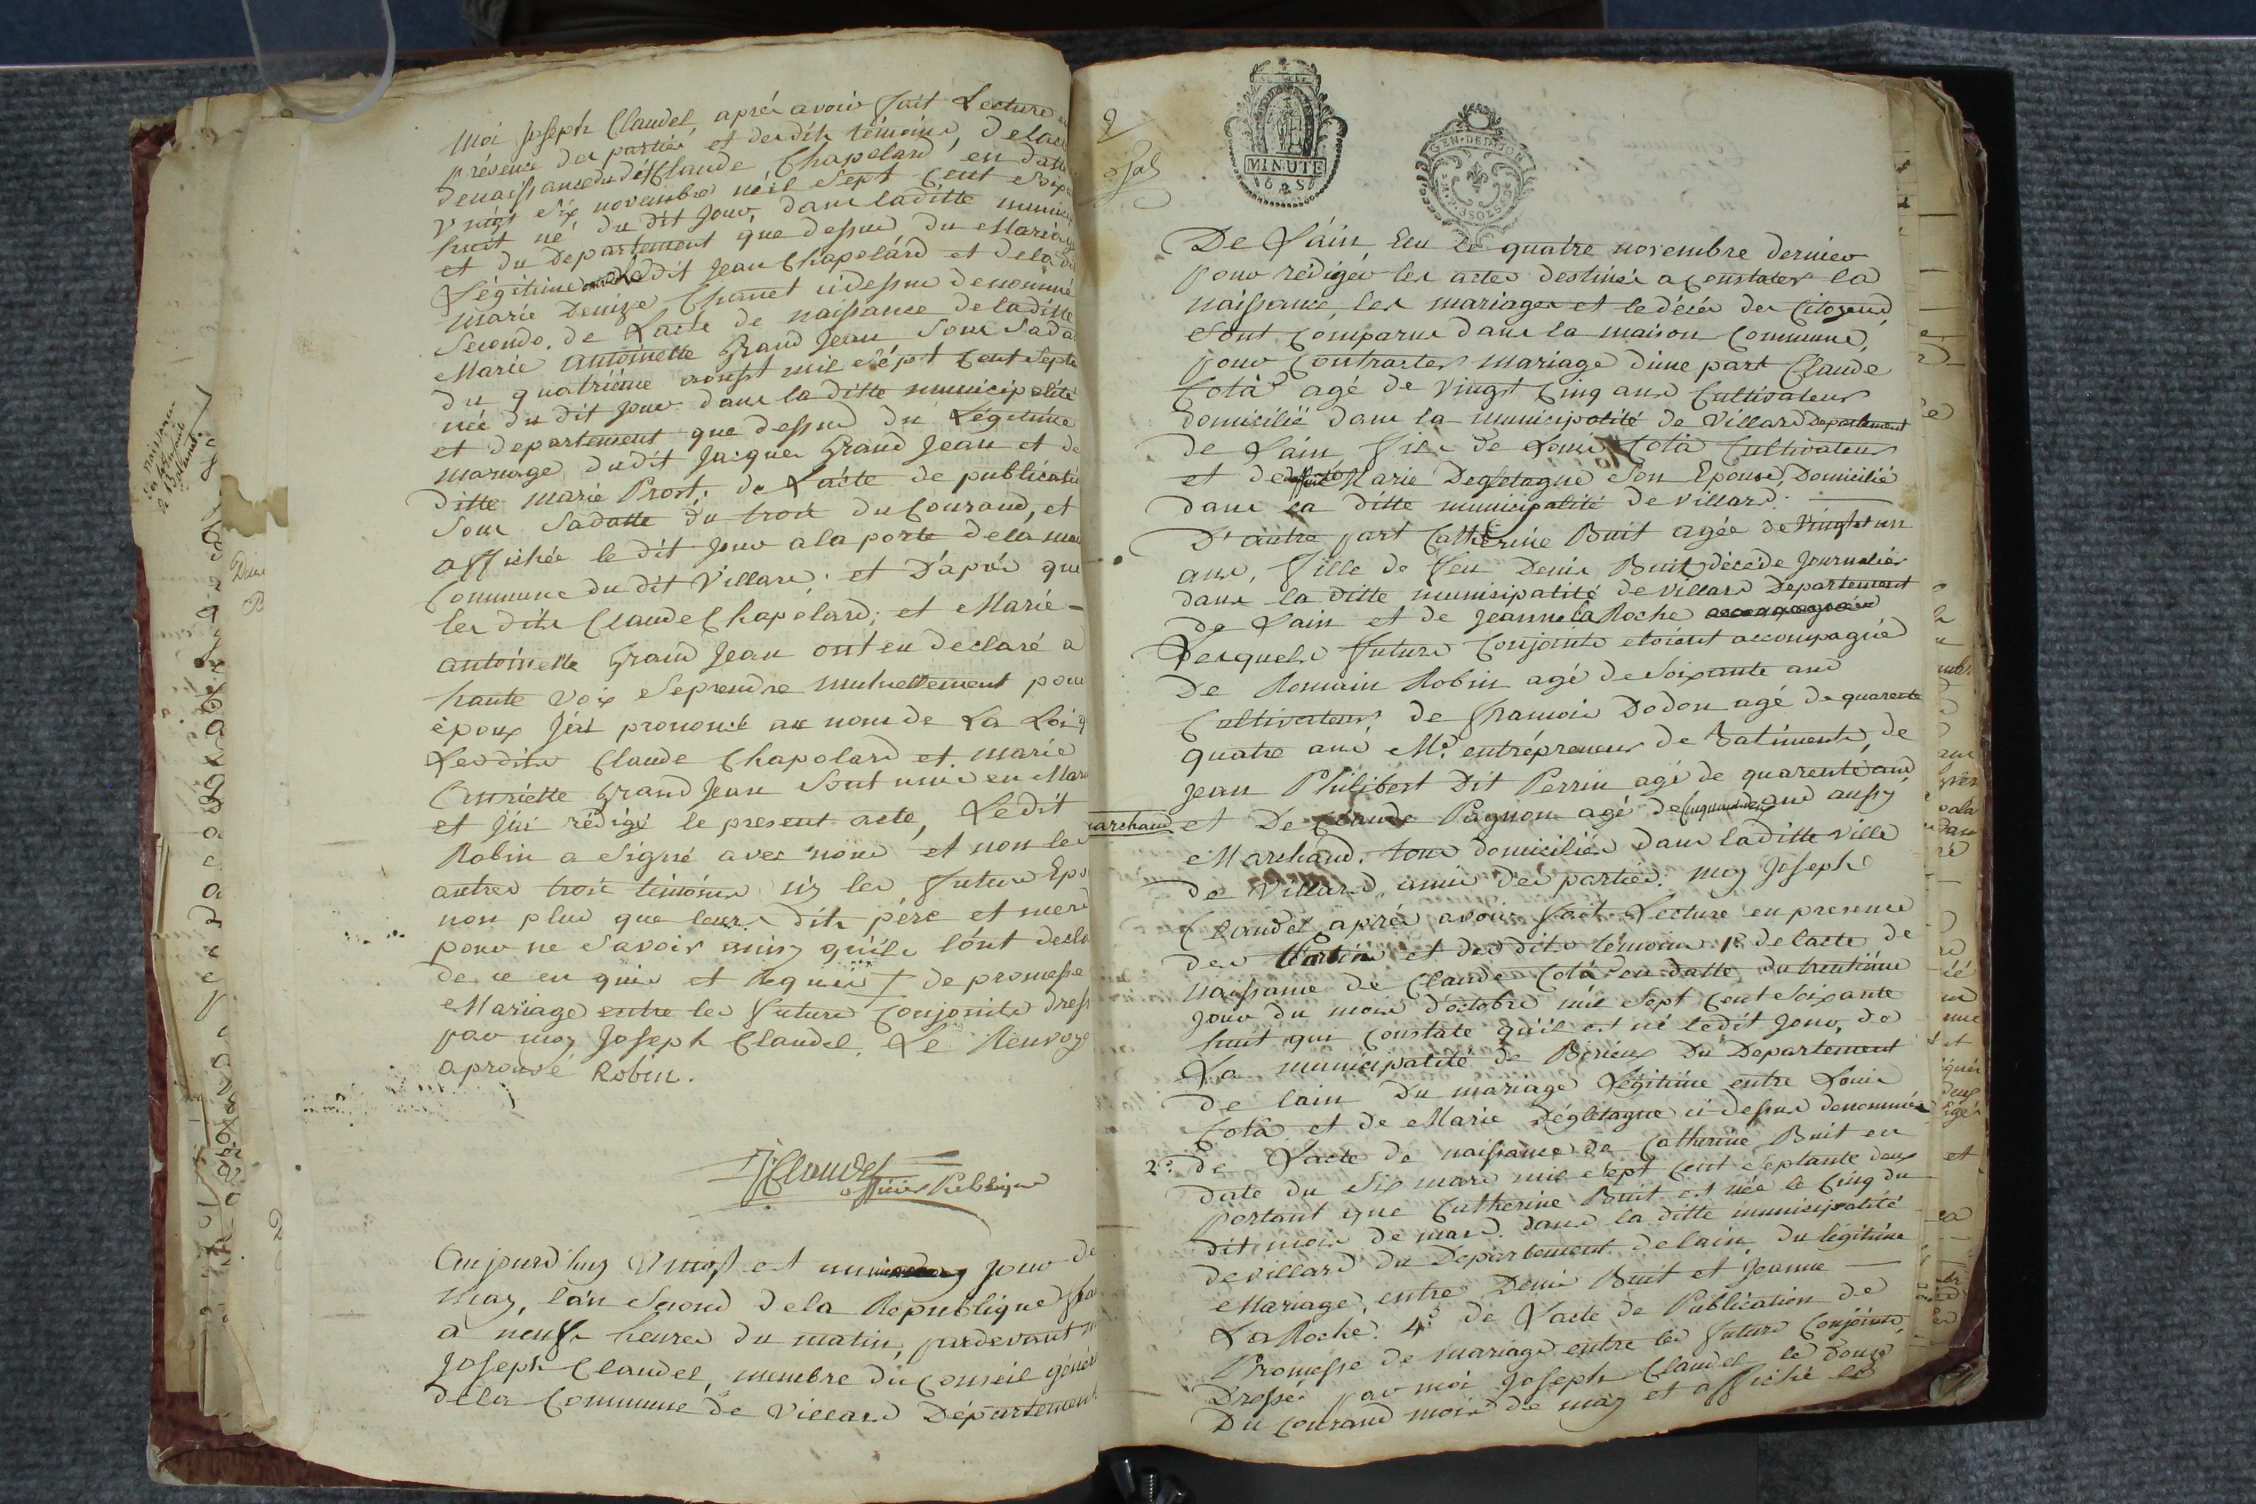 Moi Joseph Claudel, aprés avoir fait Lecture en
présence des parties et desdits témoins, de lacte
denaissance du dit Claude Chapolard, en datte
vingt six novembre mil Sept Cent Soix
huit né du dit Jour, dans laditte munici
et du Departement que dessus, du Mariage
Légitime entre ledit Jean Chapolard et de la
Marie Denize Chanet cidessus denommé
Secondo. de Lacte de naissance de la ditte
Marie antoinette Grand Jean Sous Sada
du quatriéme aoust mil Sépt Cent Septa
née du dit Jour dans la ditte municipalité
et departement que dessus du Légitime
mariage dudit Jacques Grand Jean et de
ditte Marie Prost; de Lácte de publicati
Sous Sadatte du trois du Courand, et
affichée le dit Jour a la porte de la mai
Commune du dit Villars; et D'après que
les dits Claude Chapolard; et Marie-
antoinette Grand Jean ont eu declaré a
haute voix Seprendre mutuellement pour
époux J'ai prononcé au nom de La Loi q
Lesdits Claude Chapolard et marie
Grand Jean Sont unis en Mari
et J'ai rédigé le present acte, Ledit
Robin a Signé avec nous et non les
autres trois témoins ni les futurs Epo
non plus que leurs dits père et mere
pour ne Savoir ainsy qu'ils l'ont decla
de ce en quis et Requis † de promesse
Mariage entre les futurs Conjoints dress
par moy Joseph Claudel. Le Renvoye
aprouvé Robin.
JClaudel
officier Publique
Aujourd'huy Vingt et un Jour de
may, l'an Second de la République fra
a neuf heures du matin, pardevant m
Joseph Claudel, membre du Conseil génér
de la Commune de Villars Département
MINUTE
GEN·DE DIJON
De Lain, Elu le quatre novembre dernier
pour rédiger les actes destinés a Constater la
naissance, les mariages et le décés des Citoyens,
Sont Comparus dans la maison Commune,
pour Contracter mariage dune part Claude
Cotà agé de Vingt Cinq ans Cultivateur
domicilié dans la municipalité de Villars Departement
de Lain, fils de Louis Cotà Cultivateur
et de Marie Degletagne Son Epouse, Domicilié
dans la ditte municipalité de Villars.
D'autre part Catherine Buit agée de Vingt et un
ans, fille de feu Denis Buit décédé Journalier
dans la ditte municipalité de Villars Departement
de Lain et de Jeanne la Roche
Lesquels futurs Conjoints etoient accompagnés
De Romain Robin agé de Soixante ans
Cultivateur, de françois Dodon agé de quarente
quatre ans Me. entrepreneur de Batiments, de
Jean Philibert Dit Perrin agé de quarente ans
marchand et De Claude Pagnon agé de Cinquante deux ans aussy
Marchand. tous domiciliés dans laditte ville
de Villars, amis des parties. moy Joseph
Claudel, aprés avoir fait Lecture en presence
des Parties et desdits témoins 1°. de lacte de
naissance de Claude Cotà en datte du trentiéme
Jour du mois d'octobre mil Sept Cent Soixante
huit qui Constate qu'il est né ledit Jour, de
La municipalité de Birieux Du Departement
de lain Du mariage Légitime entre Louis
Cotà et de Marie Dégletagne ci-dessus denommés
2°. de Lacte de naissance de Catherine Buit en
date du Six mars mil Sept Cent Septante deux
portant que Catherine Buit est née le Cinq du
dit mois de mars. dans la ditte municipalité
de villars du Departement de lain, du légitime
Mariage, entre Denis Buit et Jeanne
La Roche. 4°. de Lacte de Publication de
Promesse de mariage entre les futurs Conjoints,
Dressée par moi Joseph Claudel le Douze
Du Courand mois de may et affiché le